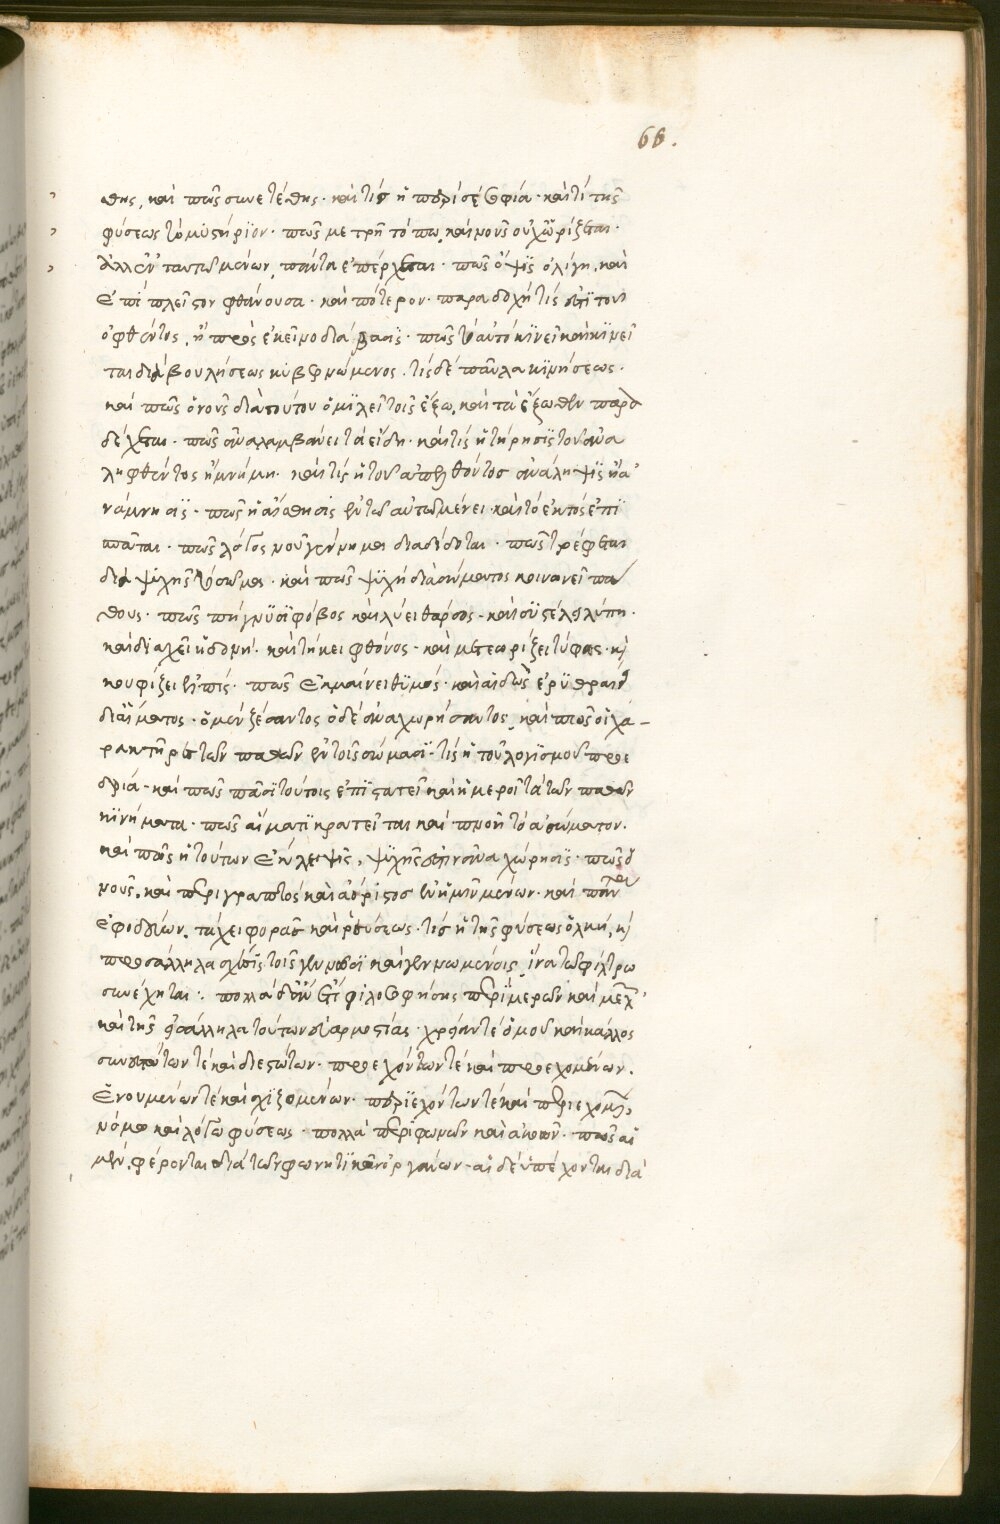 66.
θης, καὶ πῶς συνετέθης· καὶ τίς ἡ περί σε σοφία· καὶ τί τῆς
φύσεως τὸ μυστήριον· πῶς μετρῇ τόπῳ, καὶ νοῦς οὐ χωρίζεται·
ἀλλ' ἐν ταυτῷ μένων, πάντα ἐπέρχεται· πῶς ὄψις ὀλίγη, καὶ
ἐπὶ πλεῖστον φθάνουσα· καὶ πότερον παραδοχή τίς ἐστι τοῦ
ὀφθέντος, ἢ πρὸς ἐκεῖνο διάβασις· πῶς τὸ αὐτὸ κινεῖ καὶ κινεῖ
ται διὰ βουλήσεως κυβερνώμενος· τίς δὲ παῦλα κινήσεως·
καὶ πῶς ὁ νοῦς διὰ τούτου ὁμιλεῖ τοῖς ἔξω, καὶ τὰ ἔξωθεν παρα
δέχεται· πῶς ἀναλαμβάνει τὰ εἴδη· καὶ τίς ἡ τήρησις τοῦ ἀνα
ληφθέντος ἡ μνήμη· καὶ τίς ἡ τοῦ ἀπελθόντος ἀνάληψις ἡ ἀ
νάμνησις· πῶς ἡ αἴσθησις ἐν τῷ αὐτῷ μένει καὶ τὸ ἐκτὸς ἐπι
σπᾶται· πῶς λόγος νοῦ γέννημα διαδίδοται· πῶς τρέφεται
διὰ ψυχῆς τὸ σῶμα· καὶ πῶς ψυχὴ διὰ σώματος κοινωνεῖ πά
θους· πῶς πήγνυσι φόβος καὶ λύει θάρσος· καὶ συστέλλει λύπη·
καὶ διαχεῖ ἡδονή· καὶ τήκει φθόνος· καὶ μετεωρίζει τύφος· κ)
κουφίζει ἐλπίς· πῶς ἐκμαίνει θυμός· καὶ αἰδὼς ἐρυθραίνει
δι' αἵματος· ὁ μὲν ζέσαντος ὁ δὲ ἀναχωρήσαντος, καὶ πῶς οἱ χα–
ρακτῆρες τῶν παθῶν ἐν τοῖς σώμασι· τίς ἡ τοῦ λογισμοῦ προε
δρία· καὶ πῶς πᾶσι τούτοις ἐπιστατεῖ καὶ ἡμεροῖ τὰ τῶν παθῶν
κινήματα· πῶς αἵματι κρατεῖται καὶ πνοῇ τὸ ἀσώματον·
καὶ πῶς ἡ τούτων ἔκλειψις, ψυχῆς ἐστιν ἀναχώρησις· πῶς ὁ
νοῦς, καὶ περιγραπτὸς καὶ ἀόριστος ἐν ἡμῖν μένων· καὶ πάντα
ἐφοδεύων, τάχει φορᾶς καὶ ῥεύσεως· τίς ἡ τῆς φύσεως ὁλκή, κ)
πρὸς ἄλληλα σχέσις τοῖς γεννῶσι καὶ γεννωμένοις, ἵνα τῷ φίλτρῳ
συνέχηται·. πολλὰ δ' ἂν ἔτι φιλοσοφήσῃς περὶ μερῶν καὶ μελ
καὶ τῆς πρὸς ἄλληλα τούτων εὐαρμοστίας· χρείαν τε ὁμοῦ καὶ κάλλος
συνεστώτων τὲ καὶ διεστώτων· προεχόντων τὲ καὶ προεχομένων·
ἑνουμένων τὲ καὶ σχιζομένων· περιεχόντων τὲ καὶ περιεχομέν
νόμῳ καὶ λόγῳ φύσεως· πολλὰ περὶ φωνῶν καὶ ἀκοῶν· πῶς αἱ
μὲν, φέρονται διὰ τῶν φωνητικῶν ὀργάνων· αἱ δὲ ὑπέχονται διὰ